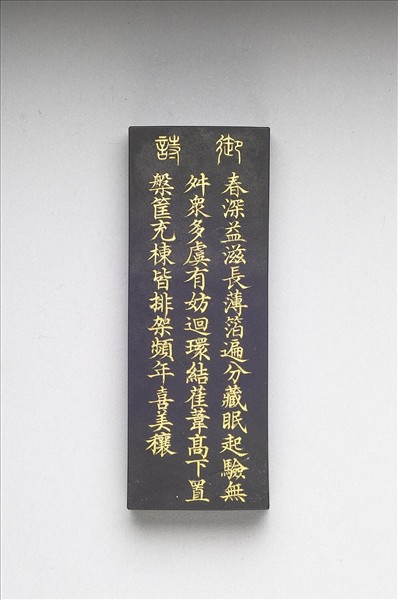 御詩
春深益滋長薄箔遍分藏眠起驗無
舛衆多虞有妨迴環結萑葦高下置
槃筐充棟皆排架頻年喜美穰